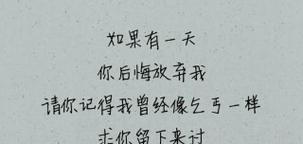 如果有一天
你后悔放弃我
请你记得我曾经像乞丐一样
求你留下来过